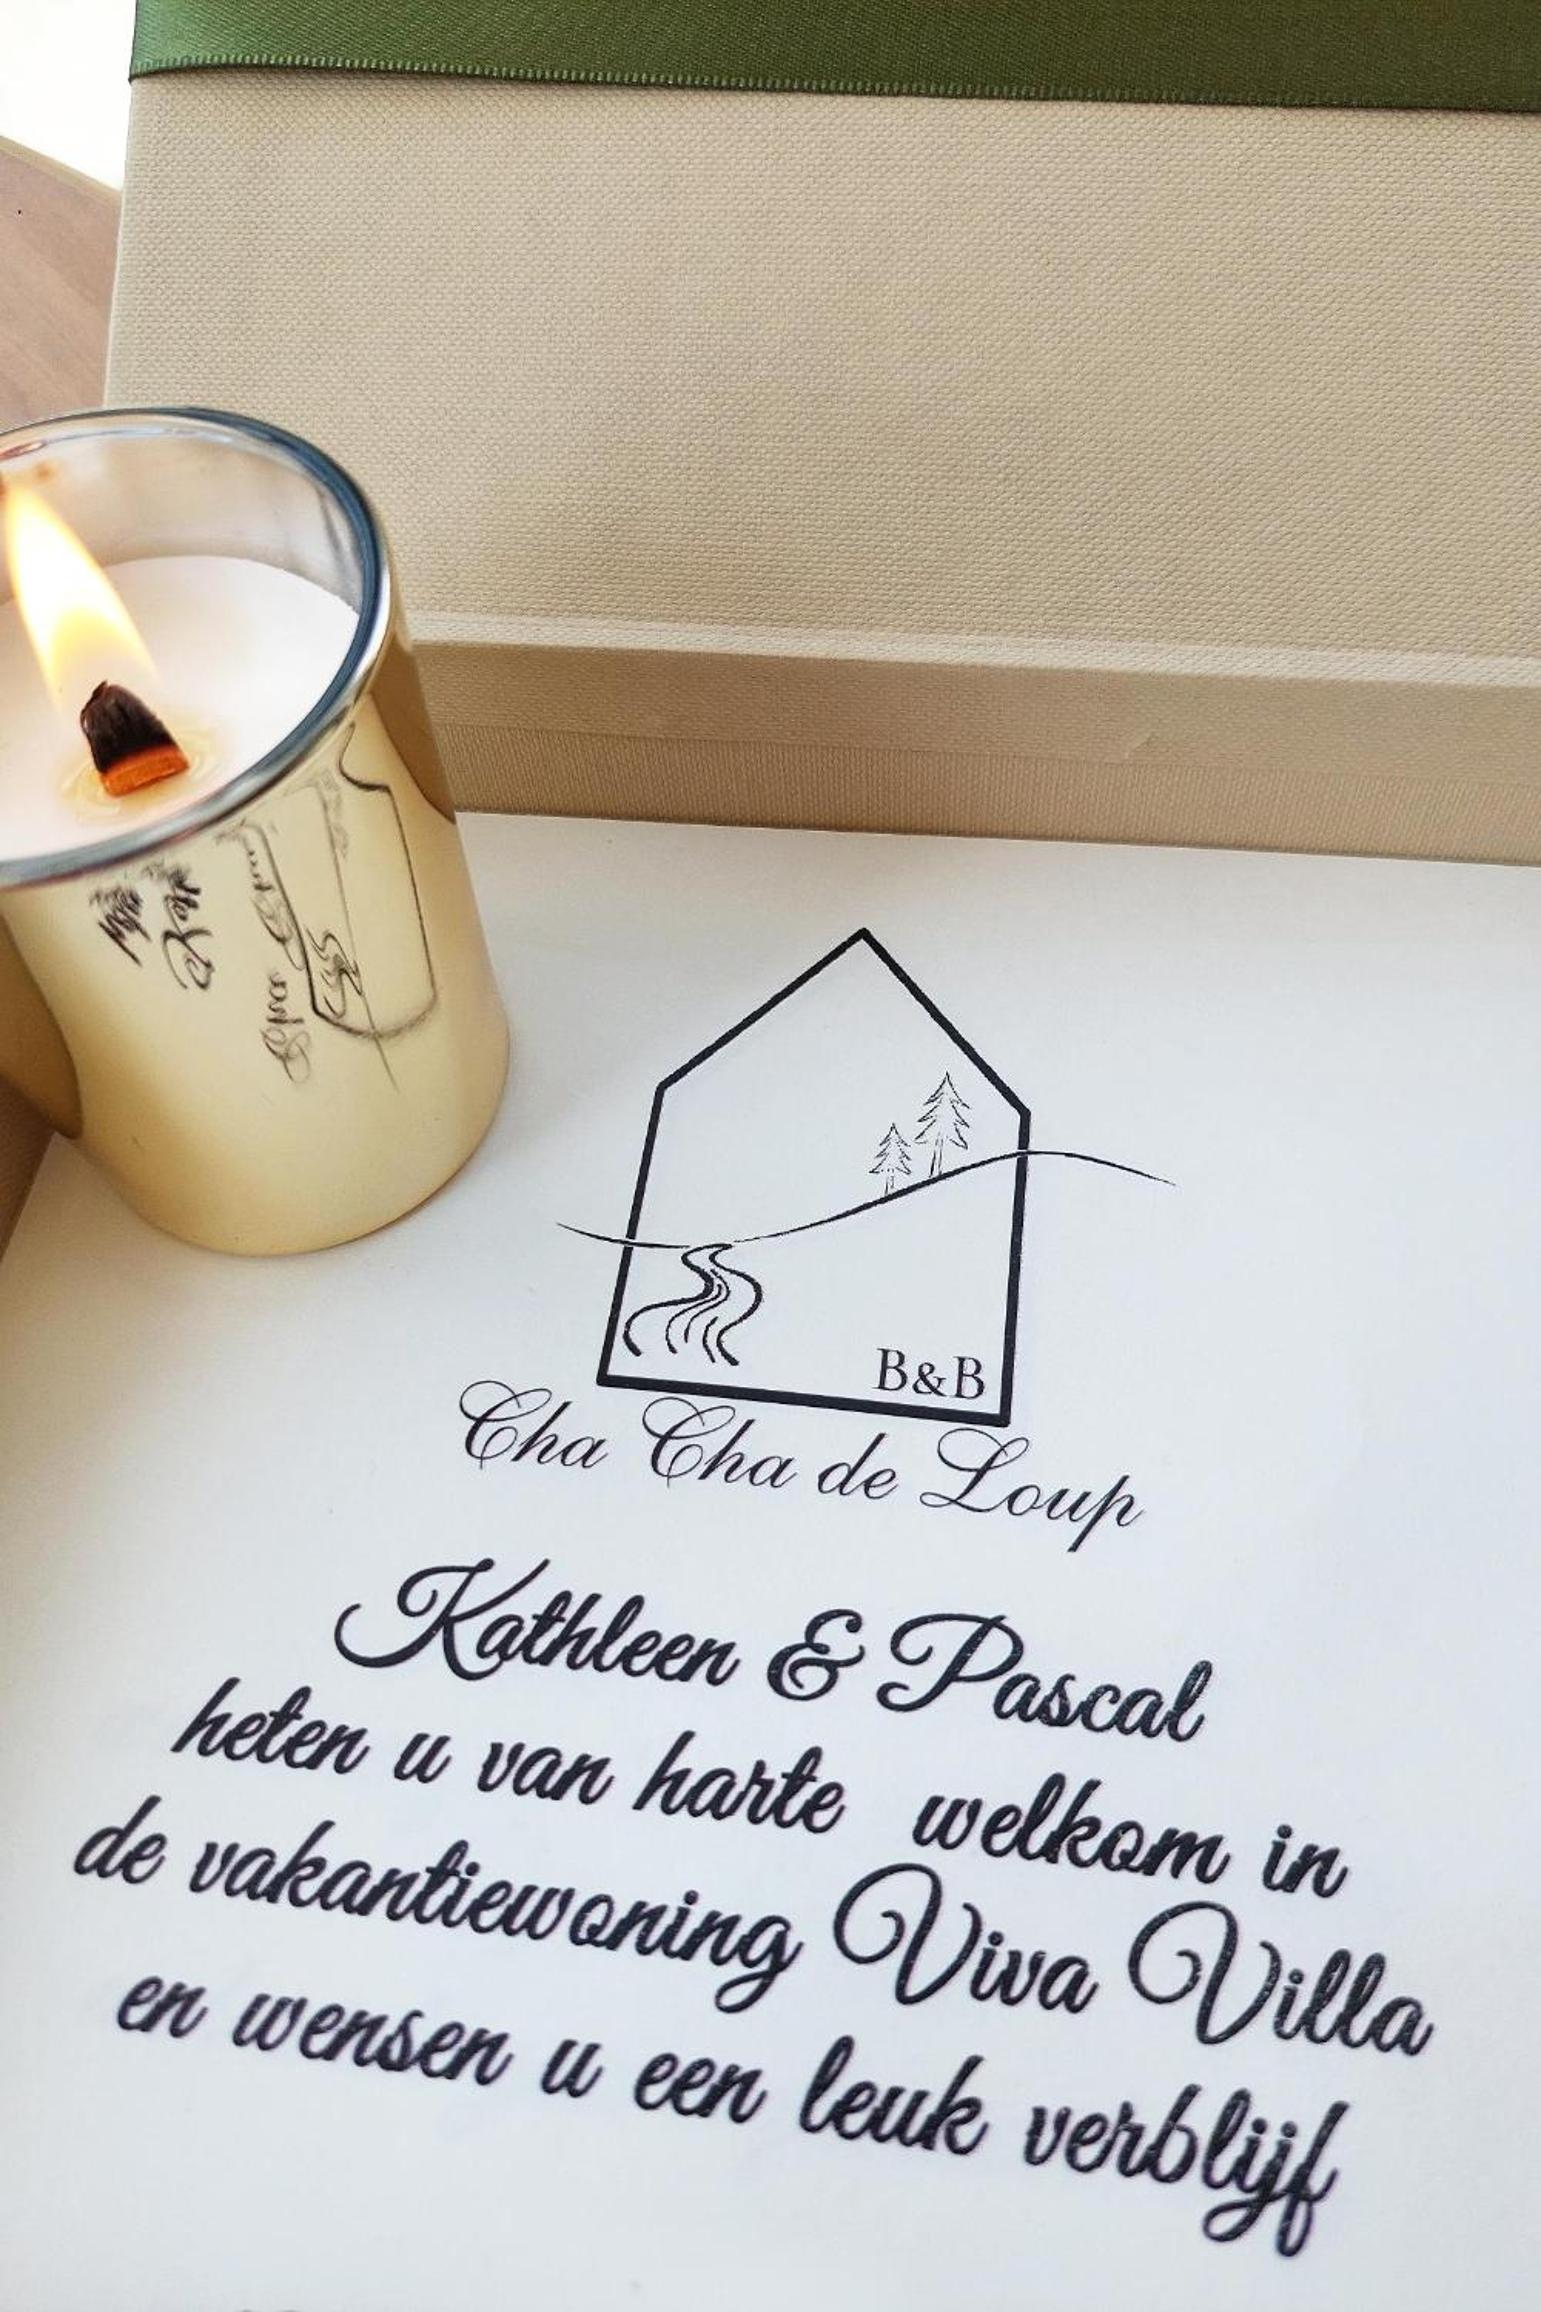 B&B
Cha Cha de Loup
Kathleen & Pascal
heten u van harte welkom in
de vakantiewoning Viva Villa
en wensen u een leuk verblijf